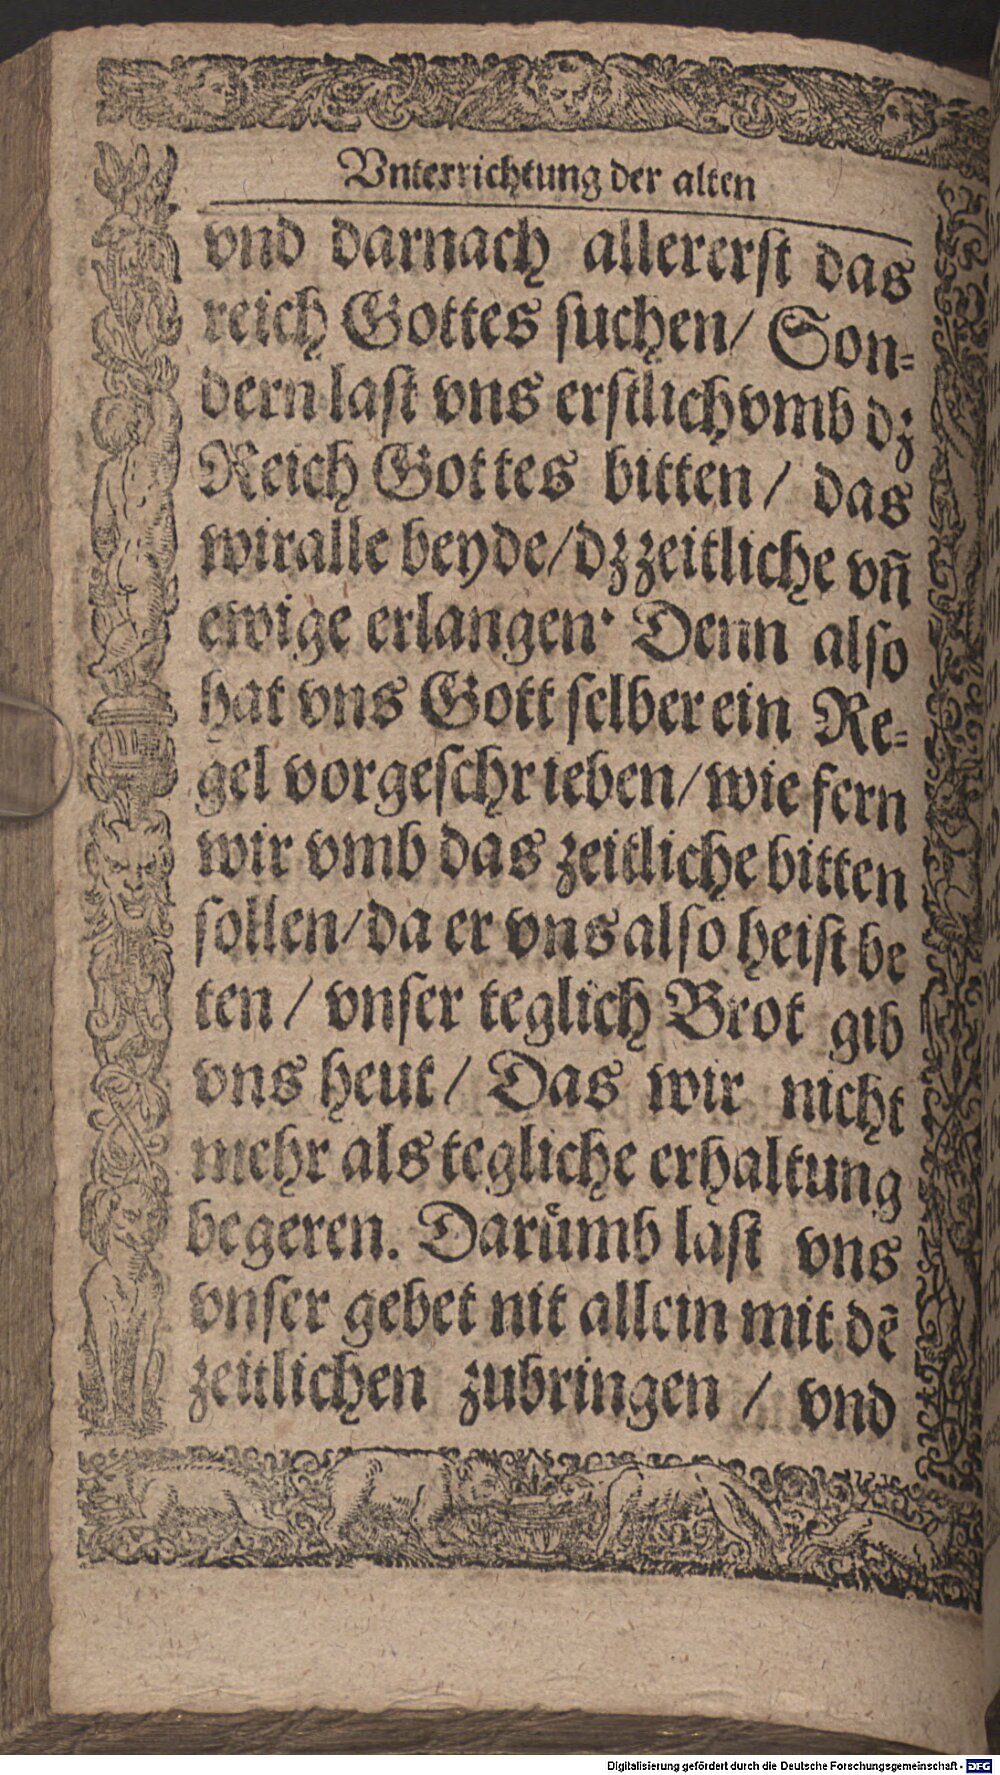 Vnterrichtung der alten
vnd darnach allererst das
reich Gottes suchen/ Son-
dern last vns erstlich vmb dz
Reich Gottes bitten/ das
wir alle beyde/ dz zeitliche vñ
ewige erlangen. Denn also
hat vns Gott selber ein Re-
gel vorgeschrieben/ wie fern
wir vmb das zeitliche bitten
sollen/ da er vns also heist be
ten/ vnser teglich Brot gib
vns heut/ Das wir nicht
mehr als tegliche erhaltung
begeren. Darümb last vns
vnser gebet nit allein mit dē
zeitlichen zubringen/ vnd
Digitalisierung gefördert durch die Deutsche Forschungsgemeinschaft - DFG